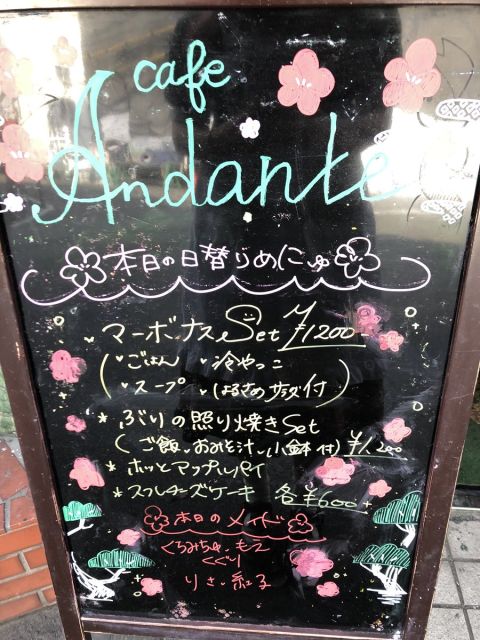 cafe
Andante
本日の日替りめにゅ
マーボナスSet ¥1200
(・ごはん ・冷やっこ
・スープ ・はるさめサラダ付)
* ぶりの照り焼きSet
(ご飯、おみそ汁、小鉢付) ¥1,200
* ホットアップルパイ
* スフレチーズケーキ 各¥600
本日のメイド
くるみちゃ・もえ
くぐり
りさ・紅子